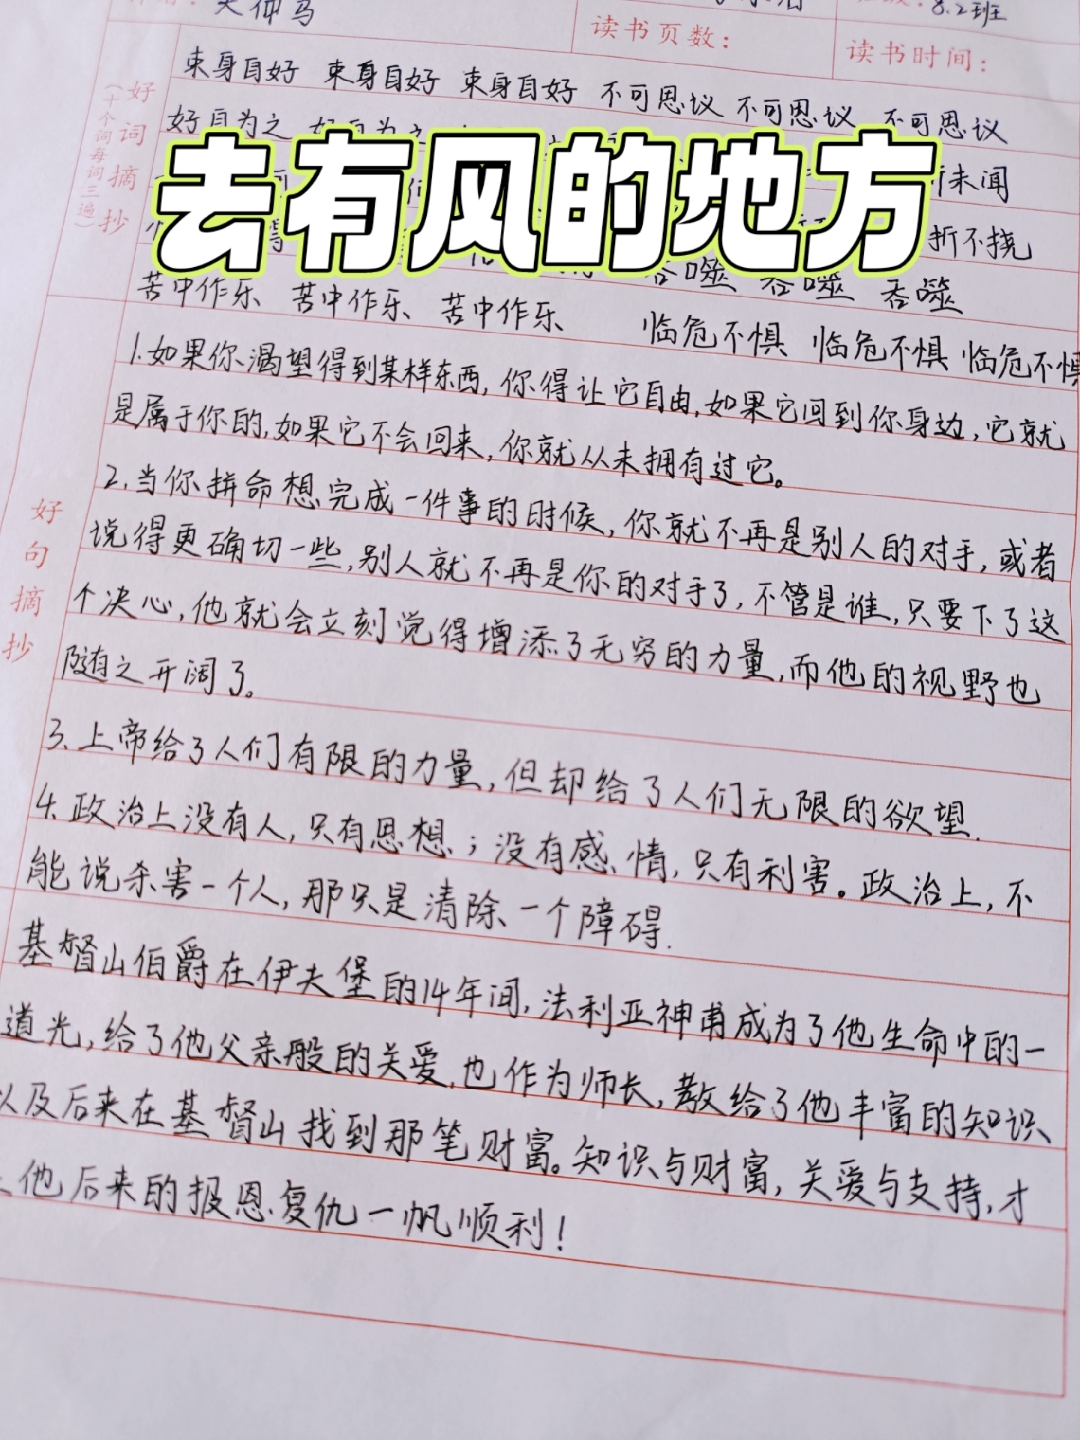 大仲马
8.2班
读书页数：
读书时间：
好词摘抄
（十个词每词三遍）
束身自好 束身自好 束身自好 不可思议 不可思议 不可思议
好自为之
去有风的地方
未闻
折不挠
吞噬 吞噬 吞噬
苦中作乐 苦中作乐 苦中作乐 临危不惧 临危不惧 临危不惧
好句摘抄
1.如果你渴望得到某样东西，你得让它自由，如果它回到你身边，它就
是属于你的，如果它不会回来，你就从未拥有过它。
2.当你拼命想完成一件事的时候，你就不再是别人的对手，或者
说得更确切一些，别人就不再是你的对手了，不管是谁，只要下了这
个决心，他就会立刻觉得增添了无穷的力量，而他的视野也
随之开阔了。
3.上帝给了人们有限的力量，但却给了人们无限的欲望.
4.政治上没有人，只有思想；没有感情，只有利害。政治上，不
能说杀害一个人，那只是清除一个障碍.
基督山伯爵在伊夫堡的14年间，法利亚神甫成为了他生命中的一
道光，给了他父亲般的关爱，也作为师长，教给了他丰富的知识
以及后来在基督山找到那笔财富。知识与财富，关爱与支持，才
他后来的报恩复仇一帆顺利！